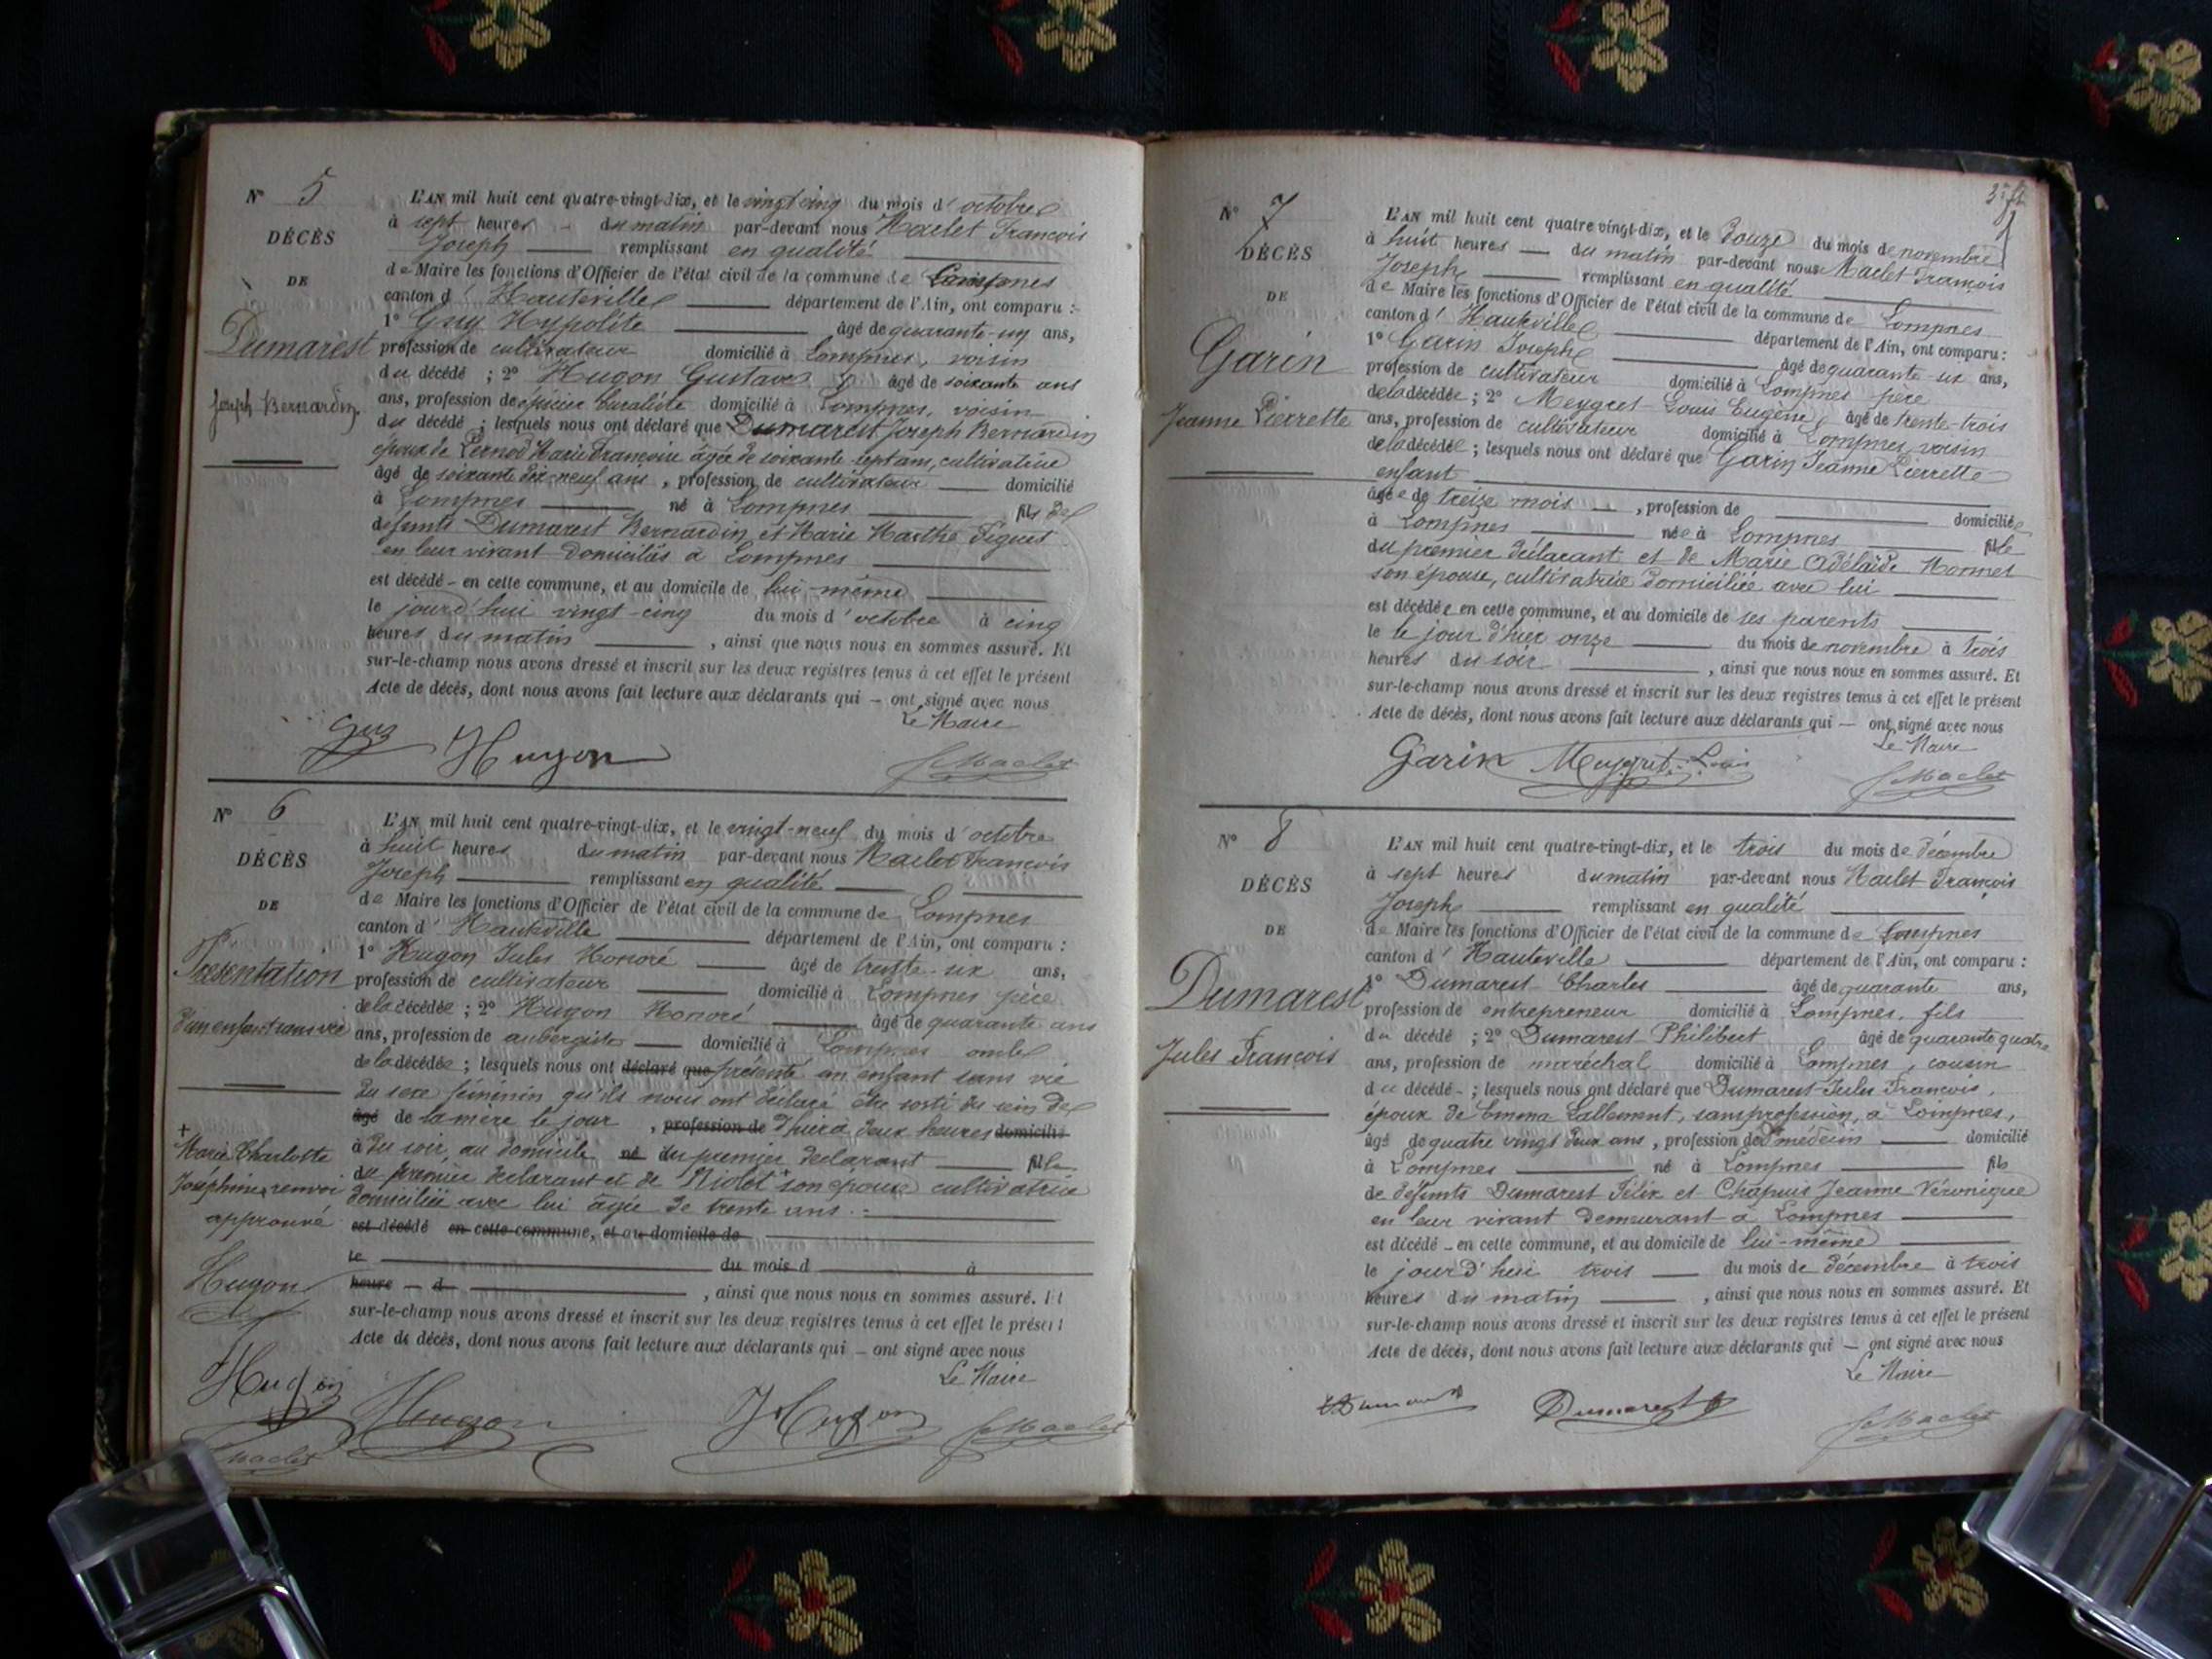 N° 5
DÉCÈS
DE
Dumarest
Joseph Bernardin
L'AN mil huit cent quatre-vingt-dix, et le vingt cinq du mois d'octobre
à sept heures du matin par-devant nous Maclet François
Joseph remplissant en qualité
de Maire les fonctions d'Officier de l'état civil de la commune de Lompnes
canton d'Hauteville département de l'Ain, ont comparu :
1° Guy Hypolite âgé de quarante-un ans,
profession de cultivateur domicilié à Lompnes, voisin
du décédé ; 2° Hugon Gustave âgé de soixante ans
ans, profession de épicier buraliste domicilié à Lompnes, voisin
du décédé ; lesquels nous ont déclaré que Dumarest Joseph Bernardin
époux de Pernod Marie Françoise âgée de soixante-sept ans, cultivatrice
âgé de soixante dix-neuf ans, profession de cultivateur domicilié
à Lompnes né à Lompnes fils de
défunts Dumarest Bernardin et Marie Marthe Figuet
en leur vivant domiciliés à Lompnes
est décédé en cette commune, et au domicile de lui-même
le jourd'hui vingt-cinq du mois d'octobre à cinq
heures du matin, ainsi que nous nous en sommes assuré. Et
sur-le-champ nous avons dressé et inscrit sur les deux registres tenus à cet effet le présent
Acte de décès, dont nous avons fait lecture aux déclarants qui — ont signé avec nous
Le Maire
Guy Hugon J Maclet
N° 6
DÉCÈS
DE
Présentation
d'un enfant sans vie
+
Marie Charlotte
Joséphine, renvoi
approuvé
Hugon
Hugon
Maclet
L'AN mil huit cent quatre-vingt-dix, et le vingt-neuf du mois d'octobre
à huit heures du matin par-devant nous Maclet François
Joseph remplissant en qualité
de Maire les fonctions d'Officier de l'état civil de la commune de Lompnes
canton d'Hauteville département de l'Ain, ont comparu :
1° Hugon Jules Honoré âgé de trente-six ans,
profession de cultivateur domicilié à Lompnes père
de la décédée ; 2° Hugon Honoré âgé de quarante ans
ans, profession de aubergiste domicilié à Lompnes oncle
de la décédée ; lesquels nous ont déclaré que présenté un enfant sans vie
du sexe féminin qu'ils nous ont déclaré être sorti du sein de
âgé de la mère le jour, profession de d'hier à deux heures domicilié
à du soir, au domicile né du premier déclarant fille
du premier déclarant et de Niolet + son épouse cultivatrice
domiciliée avec lui âgée de trente ans.
est décédé en cette commune, et au domicile de
le du mois d à
heure — d, ainsi que nous nous en sommes assuré. Et
sur-le-champ nous avons dressé et inscrit sur les deux registres tenus à cet effet le présent
Acte de décès, dont nous avons fait lecture aux déclarants qui — ont signé avec nous
Le Maire
Hugon J Hugon J Maclet
N° 7
DÉCÈS
DE
Garin
Jeanne Pierrette
L'AN mil huit cent quatre-vingt-dix, et le douze du mois de novembre
à huit heures — du matin par-devant nous Maclet François
Joseph remplissant en qualité
de Maire les fonctions d'Officier de l'état civil de la commune de Lompnes
canton d'Hauteville département de l'Ain, ont comparu :
1° Garin Joseph âgé de quarante-six ans,
profession de cultivateur domicilié à Lompnes père
de la décédée ; 2° Meygret Louis Eugène âgé de trente-trois
ans, profession de cultivateur domicilié à Lompnes voisin
de la décédée ; lesquels nous ont déclaré que Garin Jeanne Pierrette
enfant
âgée de treize mois, profession de domiciliée
à Lompnes née à Lompnes fille
du premier déclarant et de Marie Adélaïde Monnet
son épouse, cultivatrice domiciliée avec lui
est décédée en cette commune, et au domicile de ses parents
le le jour d'hier onze du mois de novembre à trois
heures du soir, ainsi que nous nous en sommes assuré. Et
sur-le-champ nous avons dressé et inscrit sur les deux registres tenus à cet effet le présent
Acte de décès, dont nous avons fait lecture aux déclarants qui — ont signé avec nous
Le Maire
Garin Meygret Louis J Maclet
N° 8
DÉCÈS
DE
Dumarest
Jules François
L'AN mil huit cent quatre-vingt-dix, et le trois du mois de décembre
à sept heures du matin par-devant nous Maclet François
Joseph remplissant en qualité
de Maire les fonctions d'Officier de l'état civil de la commune de Lompnes
canton d'Hauteville département de l'Ain, ont comparu :
1° Dumarest Charles âgé de quarante ans,
profession de entrepreneur domicilié à Lompnes, fils
du décédé ; 2° Dumarest Philibert âgé de quarante quatre
ans, profession de maréchal domicilié à Lompnes, cousin
du décédé ; lesquels nous ont déclaré que Dumarest Jules François,
époux de Emma Lallement, sans profession, à Lompnes,
âgé de quatre vingt deux ans, profession de médecin domicilié
à Lompnes né à Lompnes fils
de défunts Dumarest Félix et Chapuis Jeanne Véronique
en leur vivant demeurant à Lompnes
est décédé en cette commune, et au domicile de lui-même
le jourd'hui trois du mois de décembre à trois
heures du matin, ainsi que nous nous en sommes assuré. Et
sur-le-champ nous avons dressé et inscrit sur les deux registres tenus à cet effet le présent
Acte de décès, dont nous avons fait lecture aux déclarants qui — ont signé avec nous
Le Maire
Dumarest Dumarest J Maclet